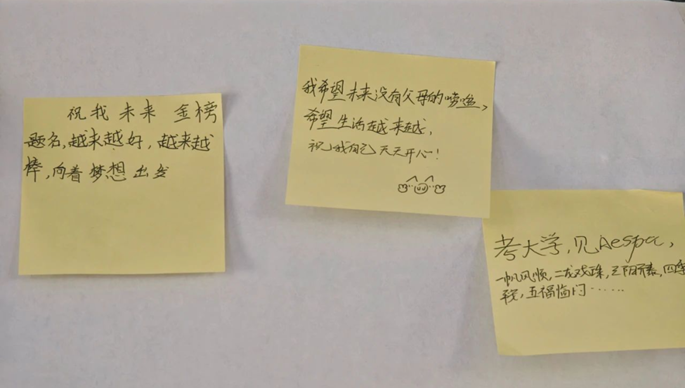 祝我未来 金榜
题名,越来越好,越来越
棒,向着梦想出发
我希望未来没有父母的唠叨,
希望生活越来越,
祝我自己天天开心!
考大学,见Aespa,
一帆风顺,二龙戏珠,三阳开泰,四季
五福临门……